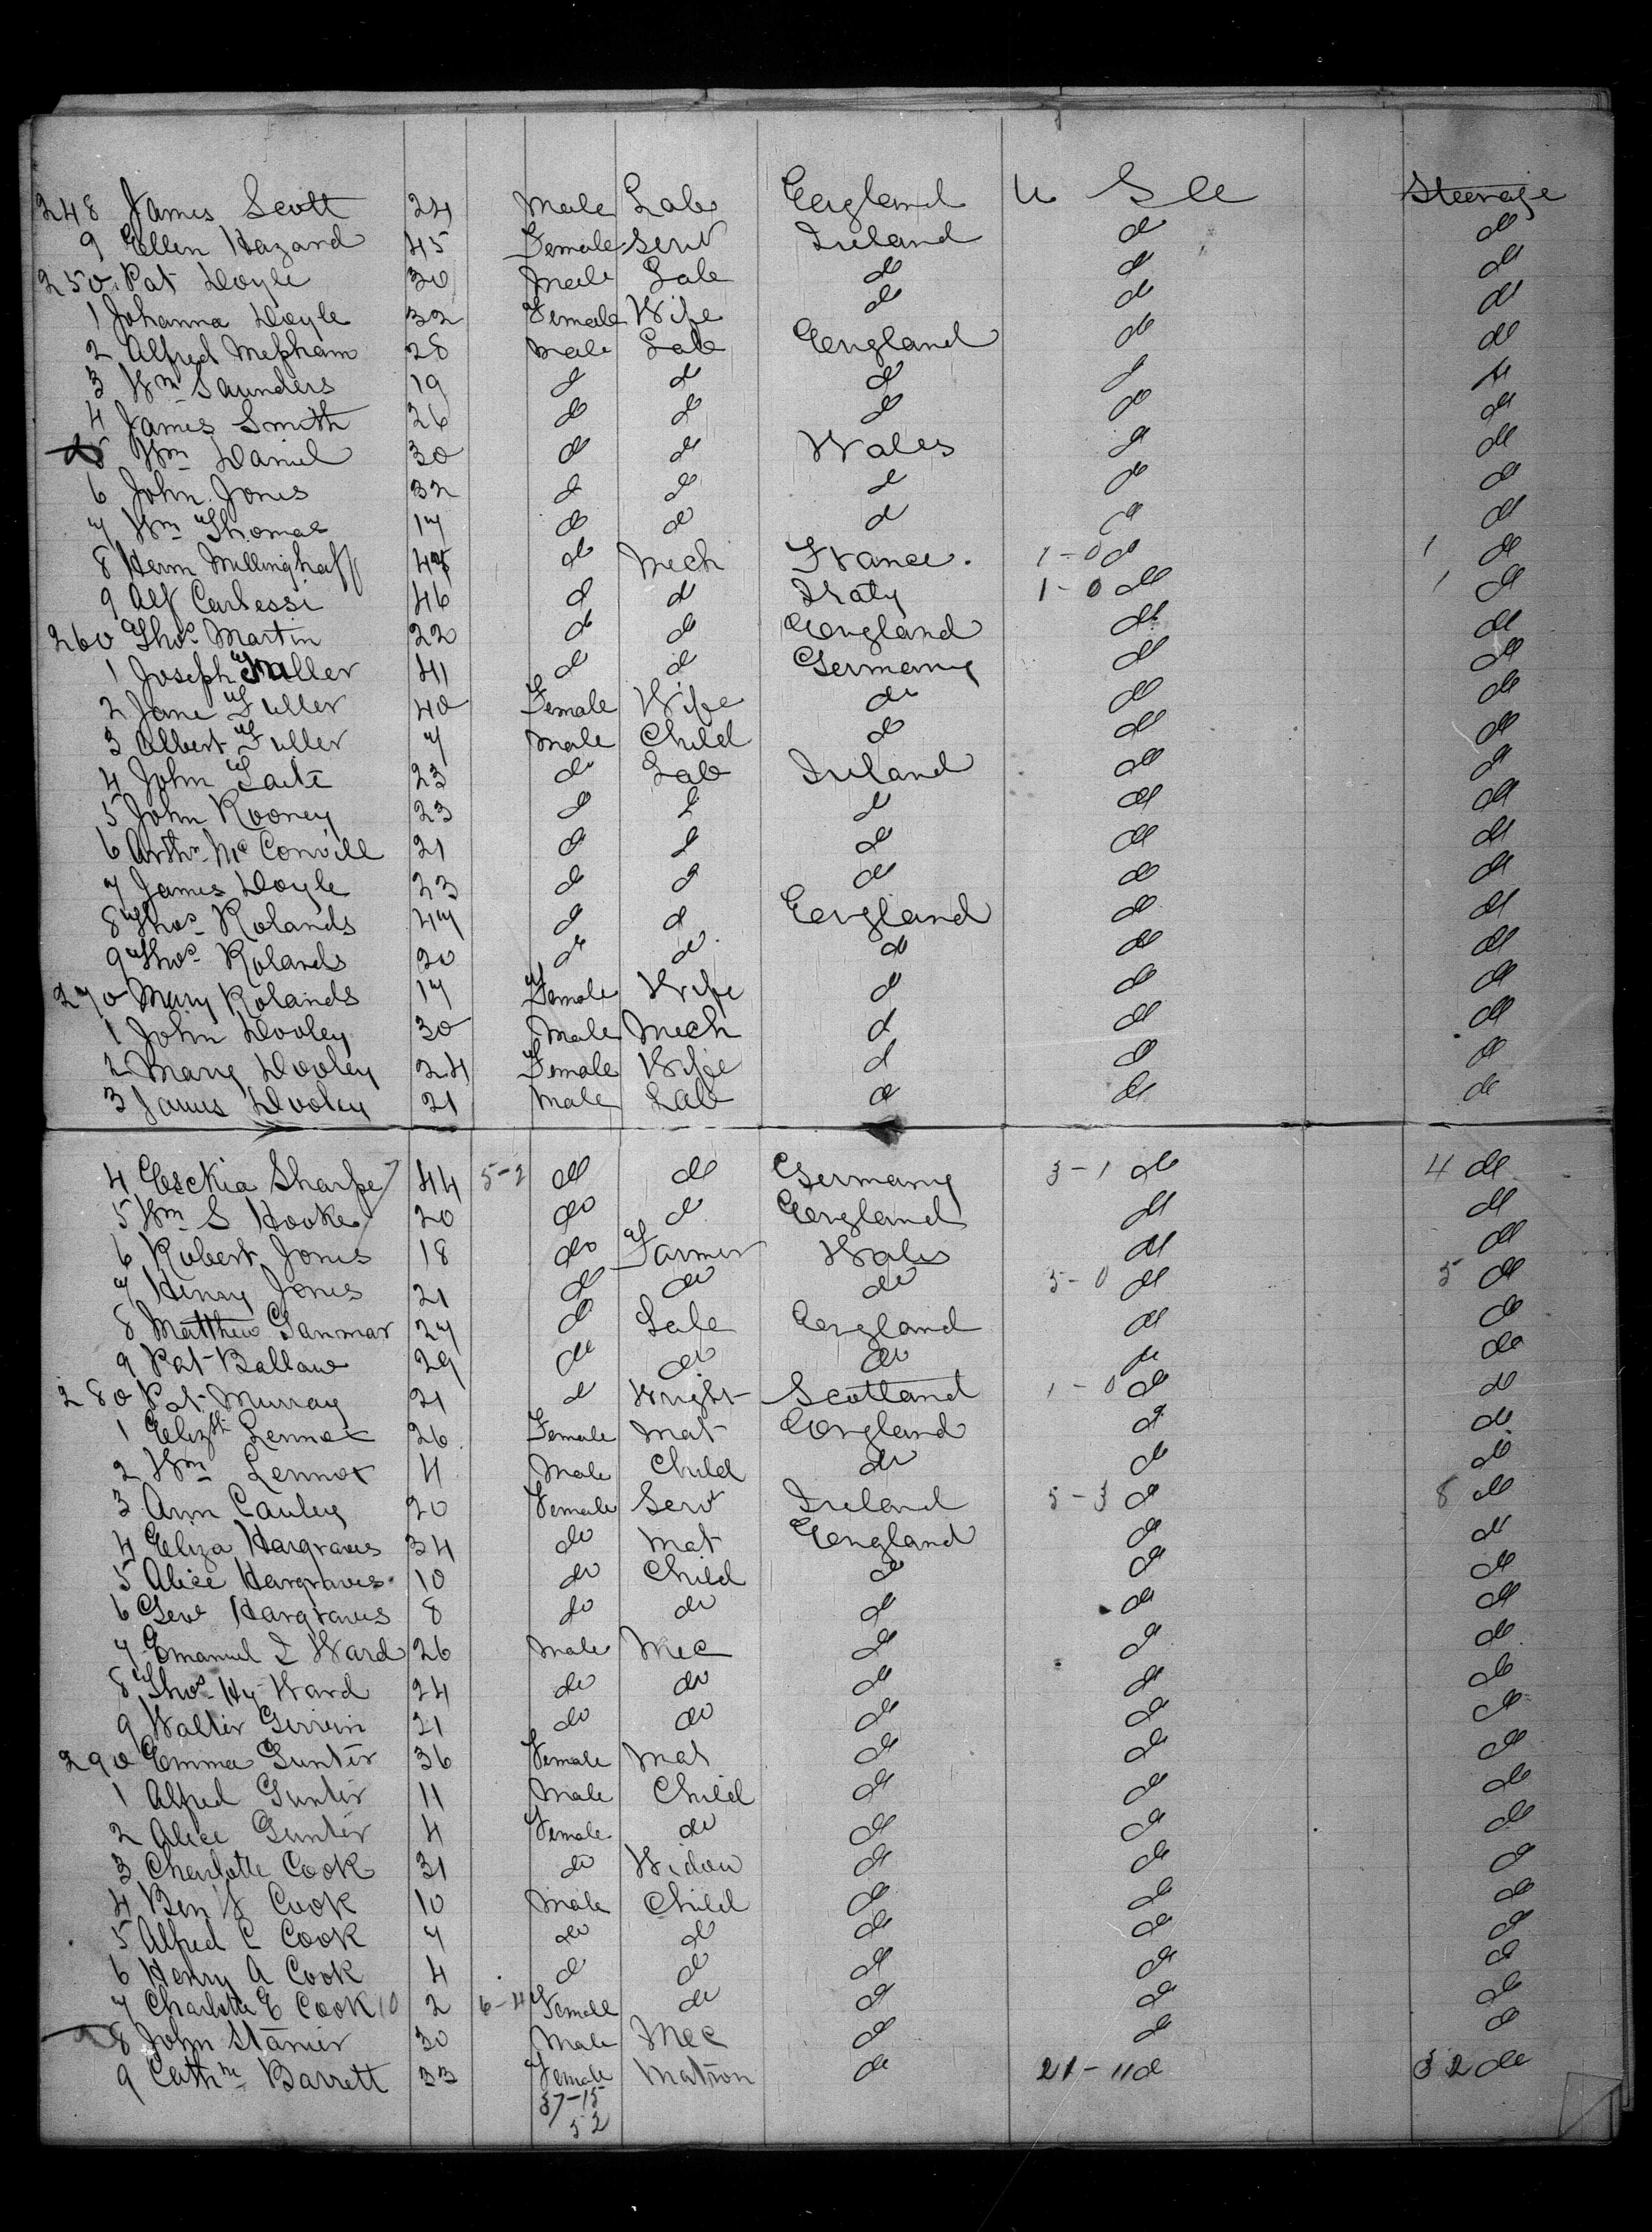 248 James Scott 24 Male Lab England U S A Steerage
9 Ellen Hazard 45 Female Servt Ireland do do
250 Pat Doyle 30 Male Lab do do do
1 Johanna Doyle 32 Female Wife do do do
2 Alfred Mepham 28 Male Lab England do do
3 Wm Saunders 19 do do do do do
4 James Smith 26 do do do do do
5 Wm Daniel 30 do do Wales do do
6 John Jones 32 do do do do do
7 Wm Thomas 17 do do do do do
8 Herm Millinghaff do Mech France. 1-0 do 1 do
9 Alf Carbessi 46 do do Italy 1-0 do 1 do
260 Thos Martin 22 do do England do do
1 Joseph Fuller 41 do do Germany do do
2 Jane Fuller 40 Female Wife do do do
3 Albert Fuller 7 Male Child do do do
4 John 23 do Lab Ireland do do
5 John Rooney 23 do do do do do
6 Arthr McConvill 21 do do do do do
7 James Doyle 23 do do do do do
8 Thos Rolands 47 do do England do do
9 Thos Rolands 20 do do do do do
270 Mary Rolands 17 Female Wife do do do
1 John Dooley 30 Male Mech do do do
2 Mary Dooley 24 Female Wife do do do
3 James Dooley 21 Male Lab do do do
4 Esckia Sharpe 7 44 5-2 do do Germany 3-1 do 4 do
5 Wm S Hooke 20 do do England do do
6 Robert Jones 18 do Farmer Wales do do
7 Henry Jones 21 do do do 5-0 do 5 do
8 Matthew Ganmar 27 do Lab England do do
9 Pat Ballawe 29 do do do do do
280 Pat Murray 21 do Wright Scotland 1-0 do do
1 Elizth Lennox 26 Female Mat England do do
2 Wm Lennox 11 Male Child do do do
3 Ann Cauley 20 Female Servt Ireland 5-3 do 8 do
4 Eliza Hargraves 34 do Mat England do do
5 Alice Hargraves 10 do Child do do do
6 Geve Hargraves 8 do do do do do
7 Emanuel I Ward 26 Male Mec do do do
8 Thos Hy Ward 24 do do do do do
9 Walter 21 do do do do do
290 Emma Gunter 36 Female Mat do do do
1 Alfred Gunter 11 Male Child do do do
2 Alice Gunter 4 Female do do do do
3 Charlotte Cook 31 do Widow do do do
4 Ben J Cook 10 Male Child do do do
5 Alfred C Cook 7 do do do do do
6 Henry A Cook 4 do do do do do
7 Charlotte E Cook 10 2 6-4 Female do do do do
8 John Stanier 30 Male Mec do do do
9 Cathne Barrett 33 Female Matron do 21-11 do 32 do
37-15
52